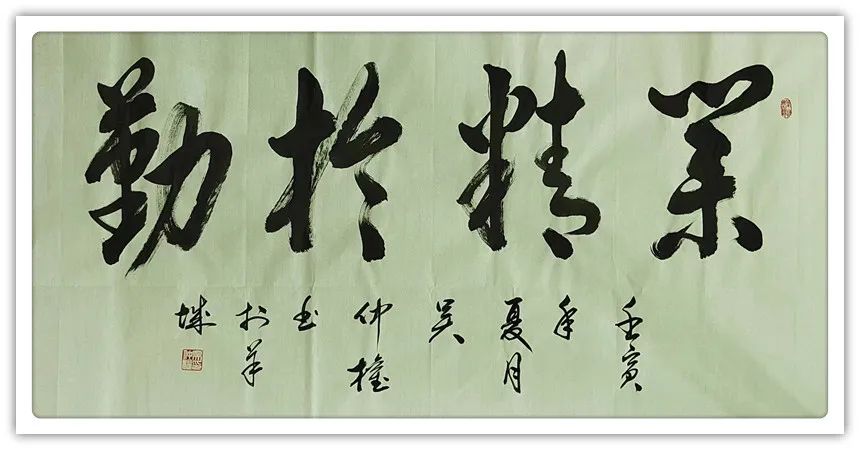 業精於勤
壬寅
年
夏月
吴
仲
书
於羊
城